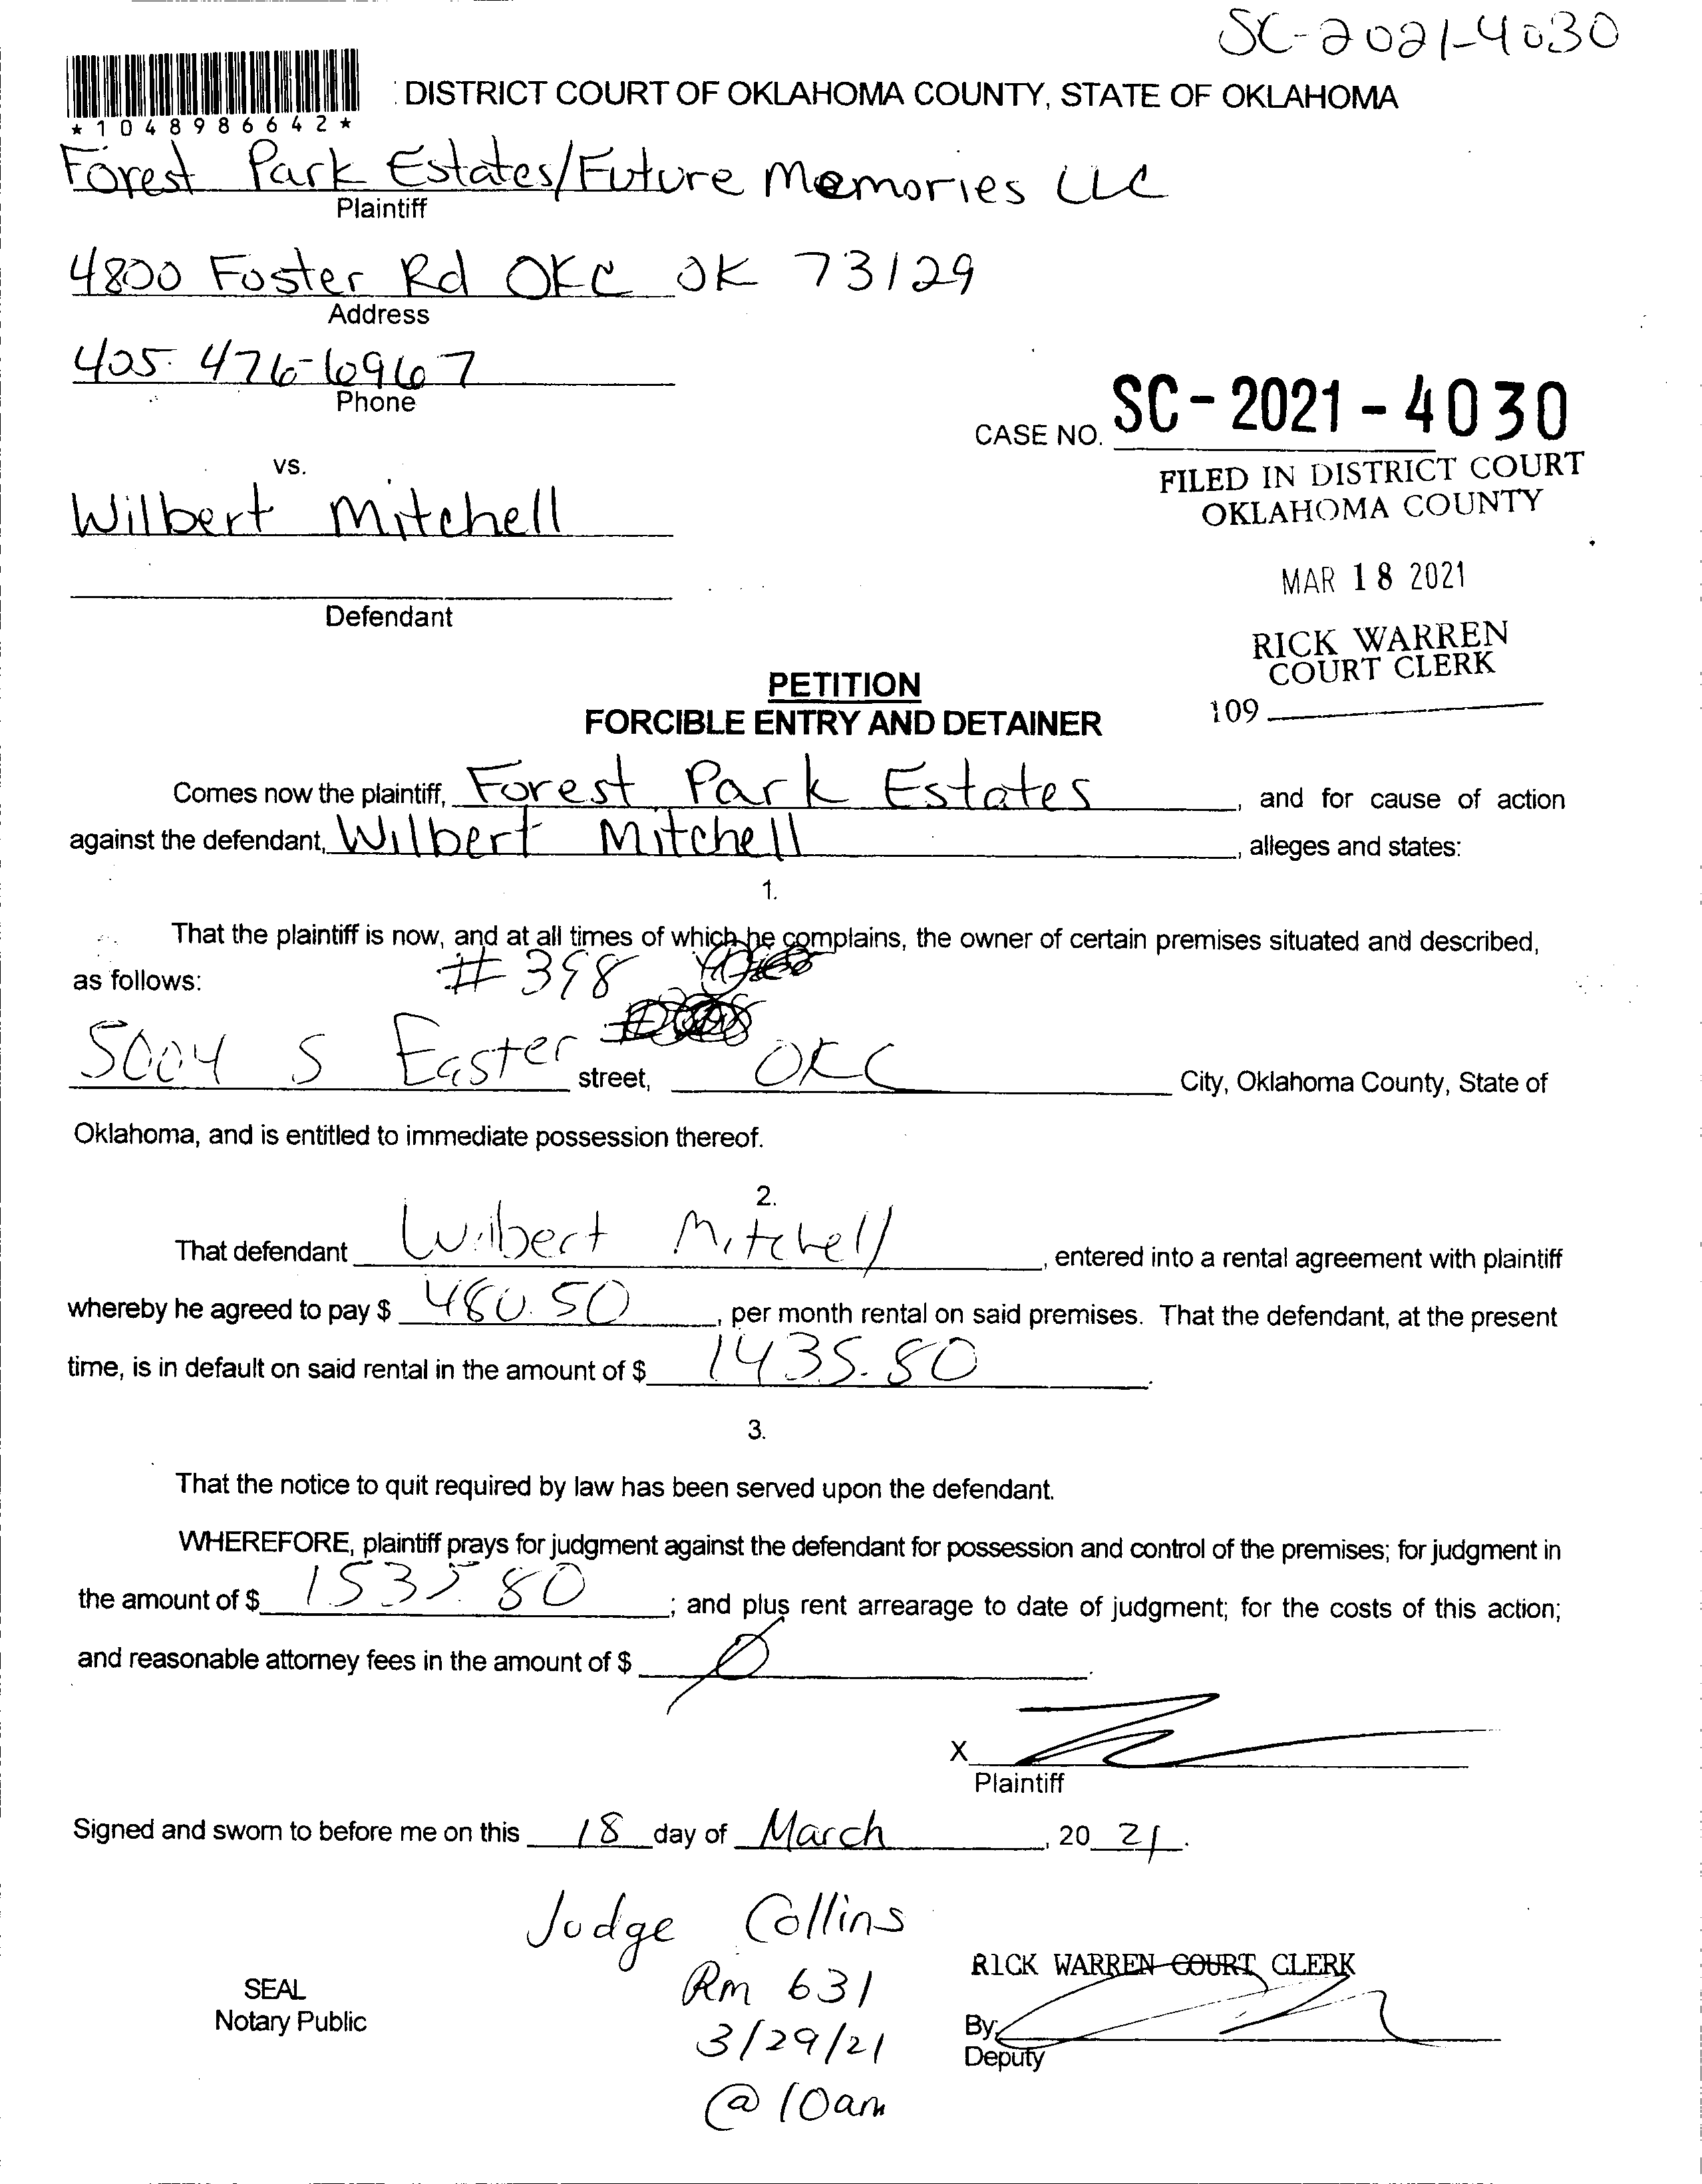 SC-2021-4030
*1048986642*
: DISTRICT COURT OF OKLAHOMA COUNTY, STATE OF OKLAHOMA
Forest Park Estates/Future Memories LLC
Plaintiff
4800 Foster Rd OKC OK 73129
Address
405-476-6967
Phone
CASE NO. SC-2021-4030
vs.
FILED IN DISTRICT COURT
OKLAHOMA COUNTY
Wilbert Mitchell
MAR 18 2021
Defendant
RICK WARREN
COURT CLERK
109
PETITION
FORCIBLE ENTRY AND DETAINER
Comes now the plaintiff, Forest Park Estates, and for cause of action
against the defendant, Wilbert Mitchell, alleges and states:
1.
That the plaintiff is now, and at all times of which he complains, the owner of certain premises situated and described,
as follows: #398
5004 S Easter street, OKC City, Oklahoma County, State of
Oklahoma, and is entitled to immediate possession thereof.
2.
That defendant Wilbert Mitchell, entered into a rental agreement with plaintiff
whereby he agreed to pay $ 480.50, per month rental on said premises. That the defendant, at the present
time, is in default on said rental in the amount of $ 1435.80.
3.
That the notice to quit required by law has been served upon the defendant.
WHEREFORE, plaintiff prays for judgment against the defendant for possession and control of the premises; for judgment in
the amount of $ 1535.80; and plus rent arrearage to date of judgment; for the costs of this action;
and reasonable attorney fees in the amount of $ 0.
X
Plaintiff
Signed and sworn to before me on this 18 day of March, 20 21.
Judge Collins
RICK WARREN COURT CLERK
SEAL
Rm 631
Notary Public
3/29/21
By:
Deputy
@ 10am